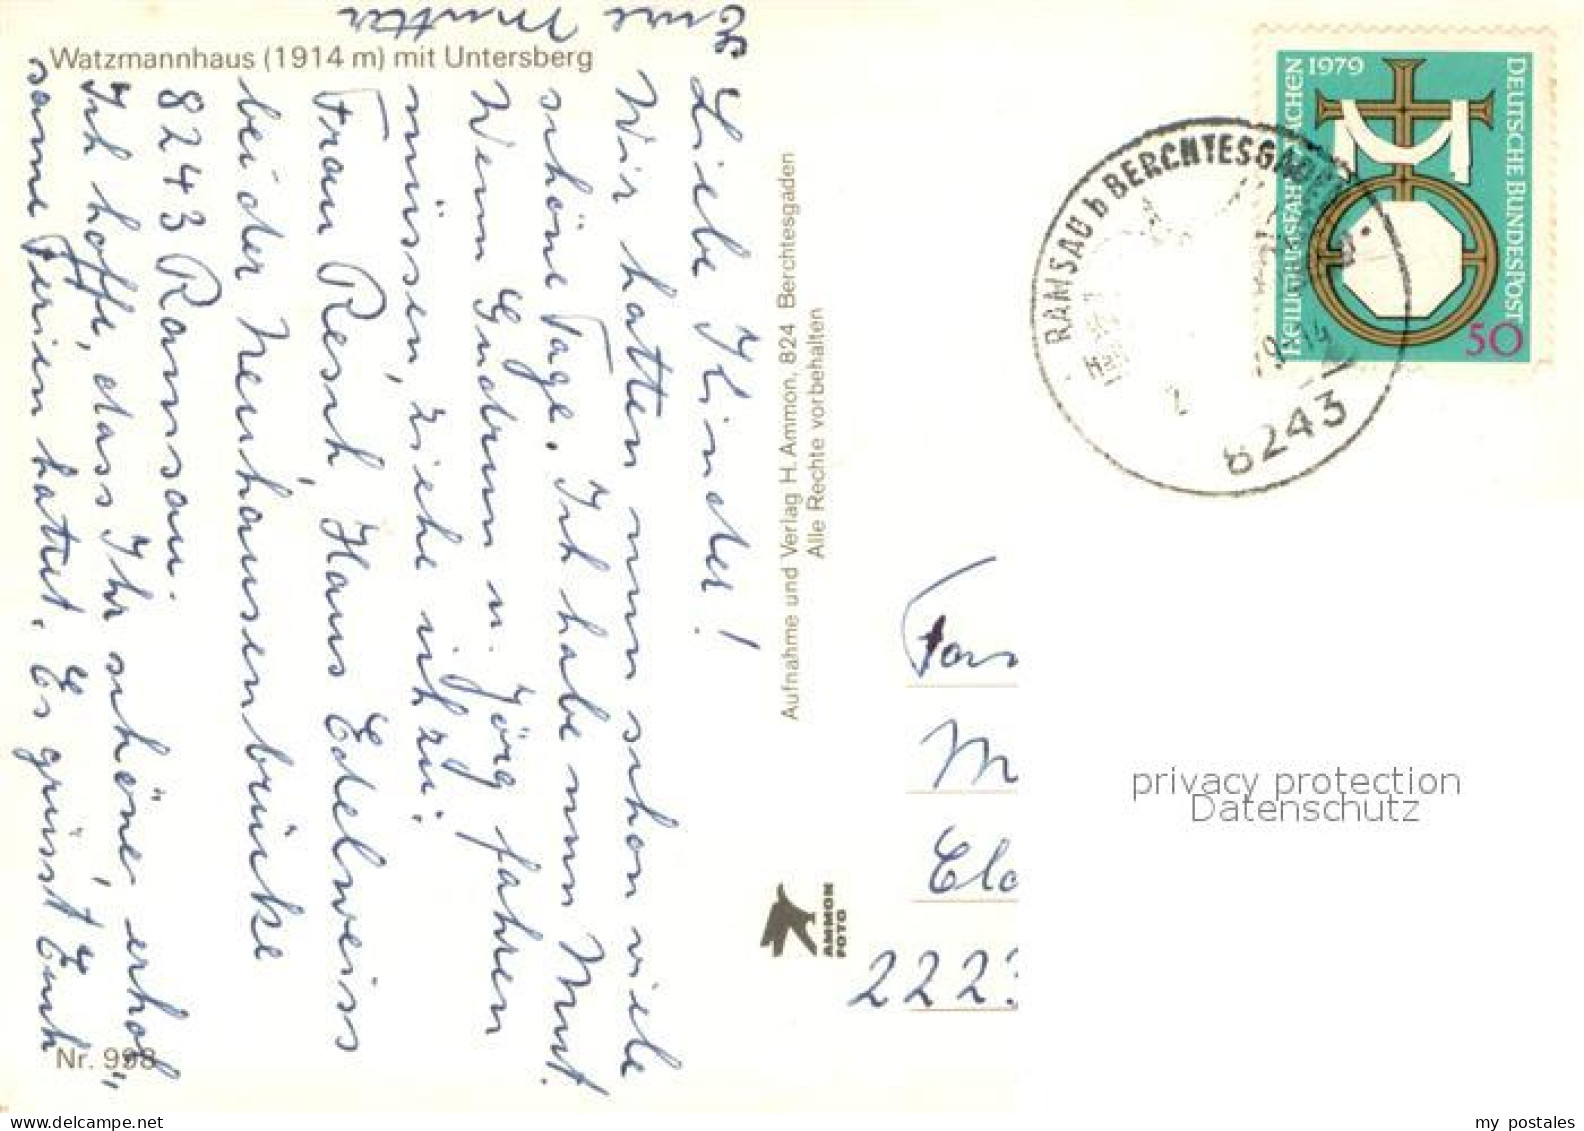 Watzmannhaus (1914 m) mit Untersberg
Liebe Kinder!
Wir hatten nun schon viele
schöne Tage. Ich habe nun Mut.
Wenn Gudrun u. Jörg fahren
müssen, ziehe ich zu:
Frau Resch, Haus Edelweiss
bei der Neuhausenbrücke
8243 Ramsau.
Ich hoffe, dass Ihr schöne, erhol
same Ferien hattet. Es grüsst Euch
Eure Mutter
Nr. 998
Aufnahme und Verlag H. Ammon, 824 Berchtesgaden
Alle Rechte vorbehalten
AMMON
FOTO
RAMSAU b BERCHTESGADEN
8243
1979
HEILIGTUMSFAHRT AACHEN
DEUTSCHE BUNDESPOST
50
Fam
M
222
privacy protection
Datenschutz
my postales